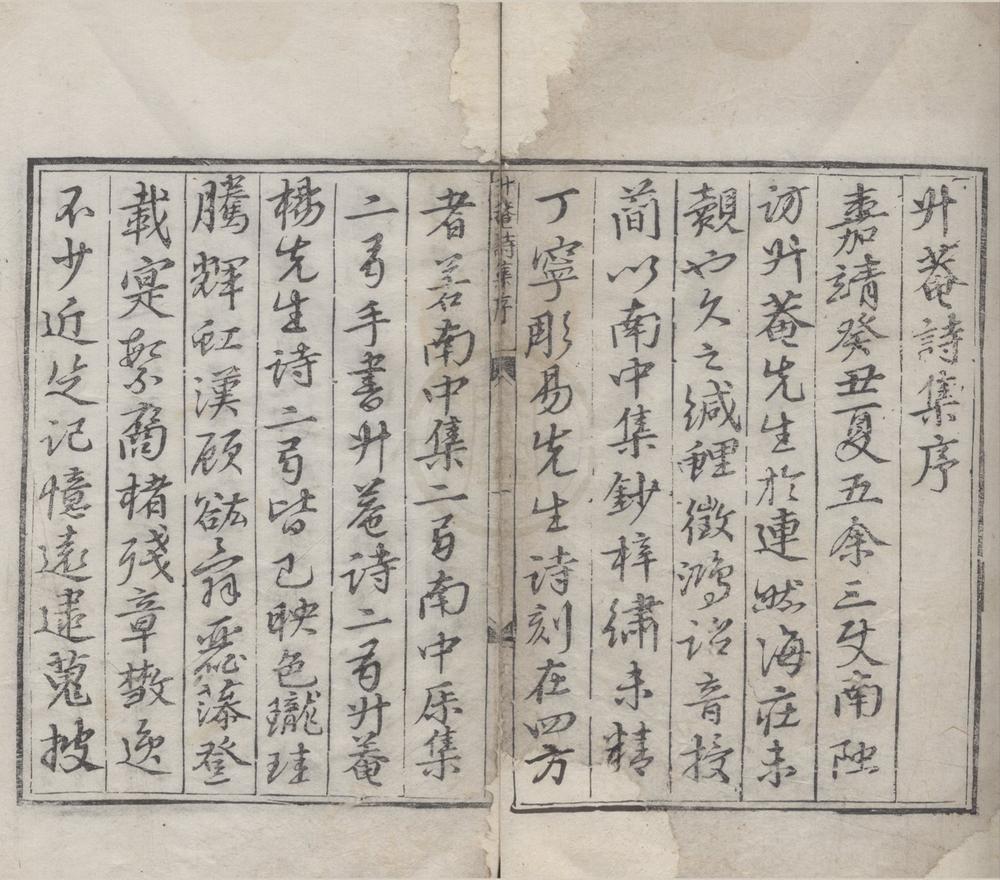 升菴詩集序
嘉靖癸丑夏五余三使南陲
訪升菴先生於連然海莊未
覿也久之緘鯉徵鴻詒音授
簡以南中集鈔梓繡未精
丁寧彫易先生詩刻在四方
者若南中集二弓南中續集
二弓手書升菴詩二弓升菴
楊先生詩二弓皆已映色瓏珪
騰輝虹漢顧
載寔繁裔楮殘章散逸
不少近從記憶遠逮蒐披
升菴詩集序